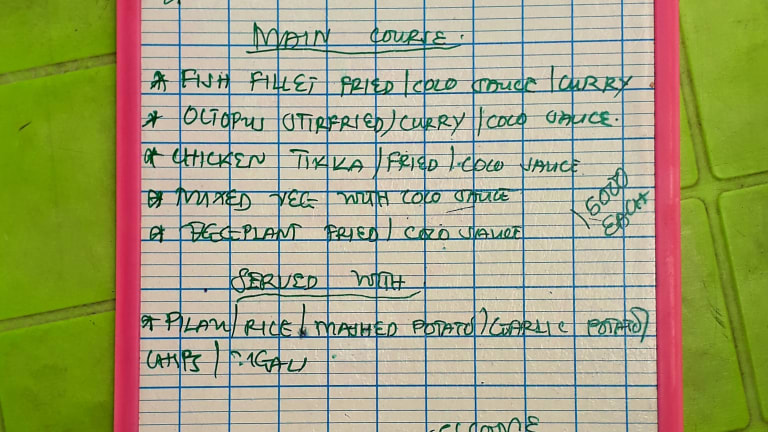 MAIN COURSE.
* FISH FILLET FRIED / COCO SAUCE / CURRY
* OCTOPUS STIRFRIED / CURRY / COCO SAUCE.
* CHICKEN TIKKA / FRIED / COCO SAUCE
* MIXED VEG WITH COCO SAUCE
15000 EACH
* EGGPLANT FRIED / COCO SAUCE
SERVED WITH
* PILAU / RICE / MASHED POTATO / GARLIC POTATO /
CHIPS /